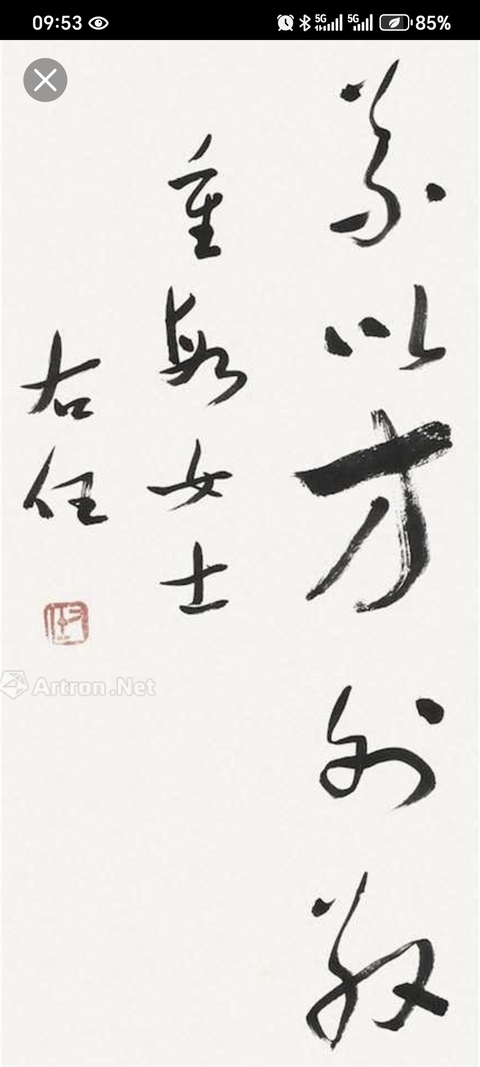 09:53 5G 5G 85%
義以方外敬
重女士
右任
右任
Artron.Net